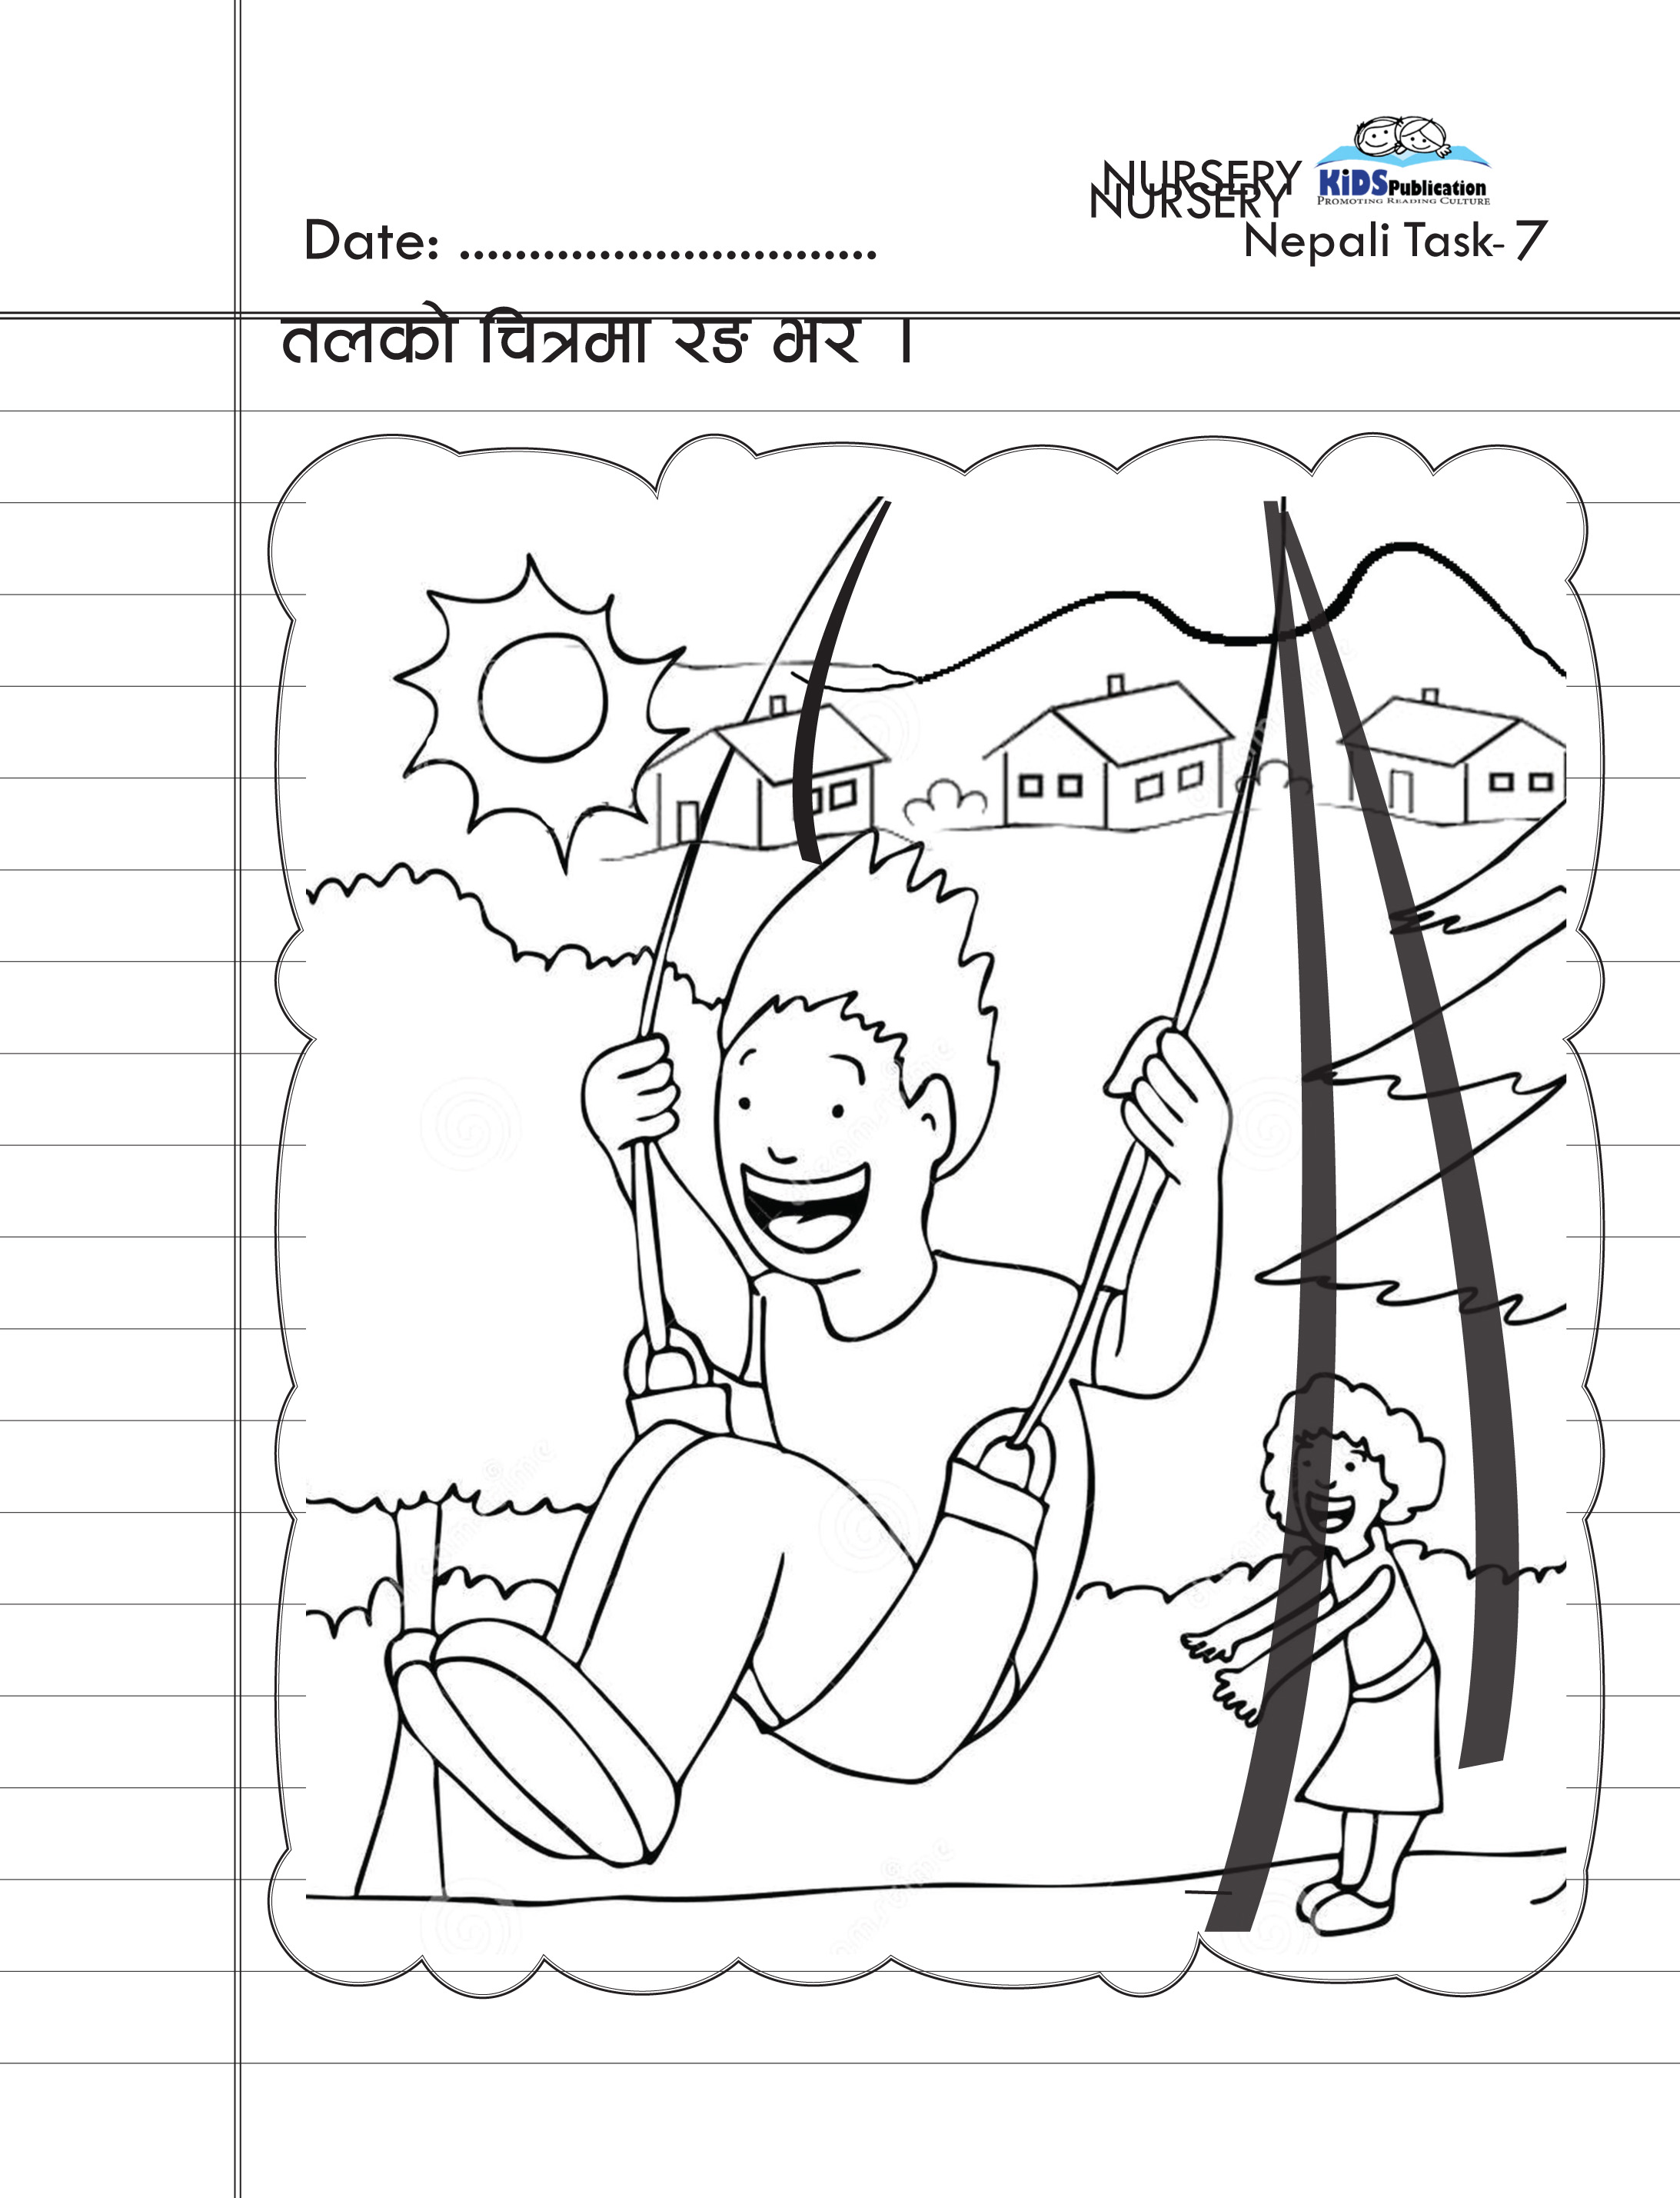 NURSERY
NURSERY
KiDS Publication
PROMOTING READING CULTURE
Date: ..............................
Nepali Task- 7
तलको चित्रमा रङ भर ।